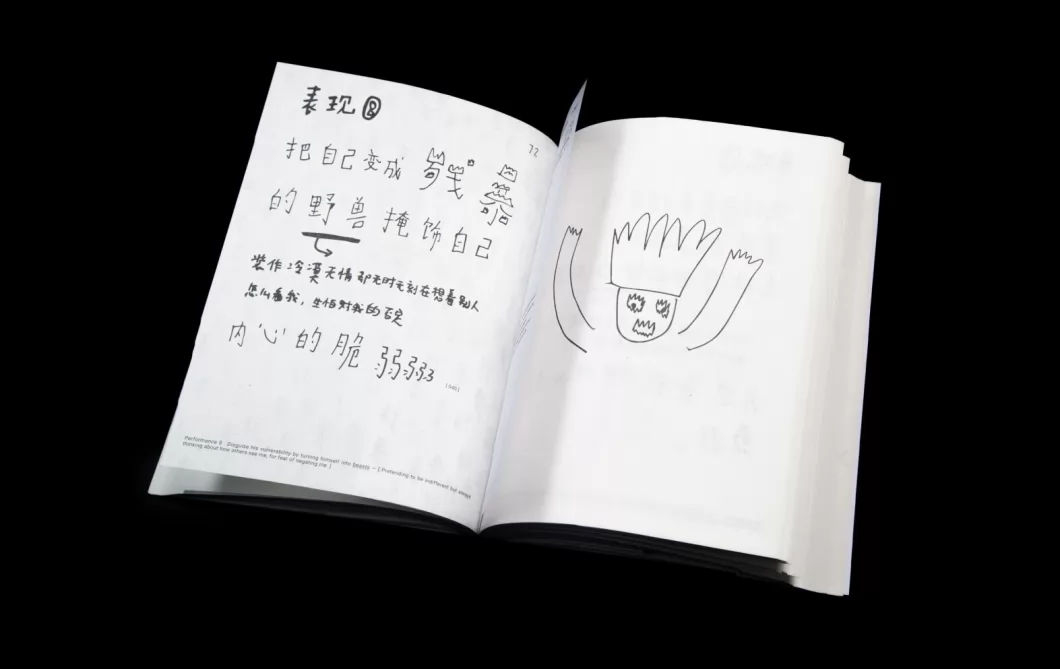 72
表现⑧
把自己变成残暴
的野兽掩饰自己
装作冷漠无情却无时无刻在想着别人
怎么看我，生怕对我的否定
内心的脆弱
Performance 8 : Disguise his vulnerability by turning himself into beasts — [ Pretending to be indifferent but always
thinking about how others see me, for fear of negating me. ]